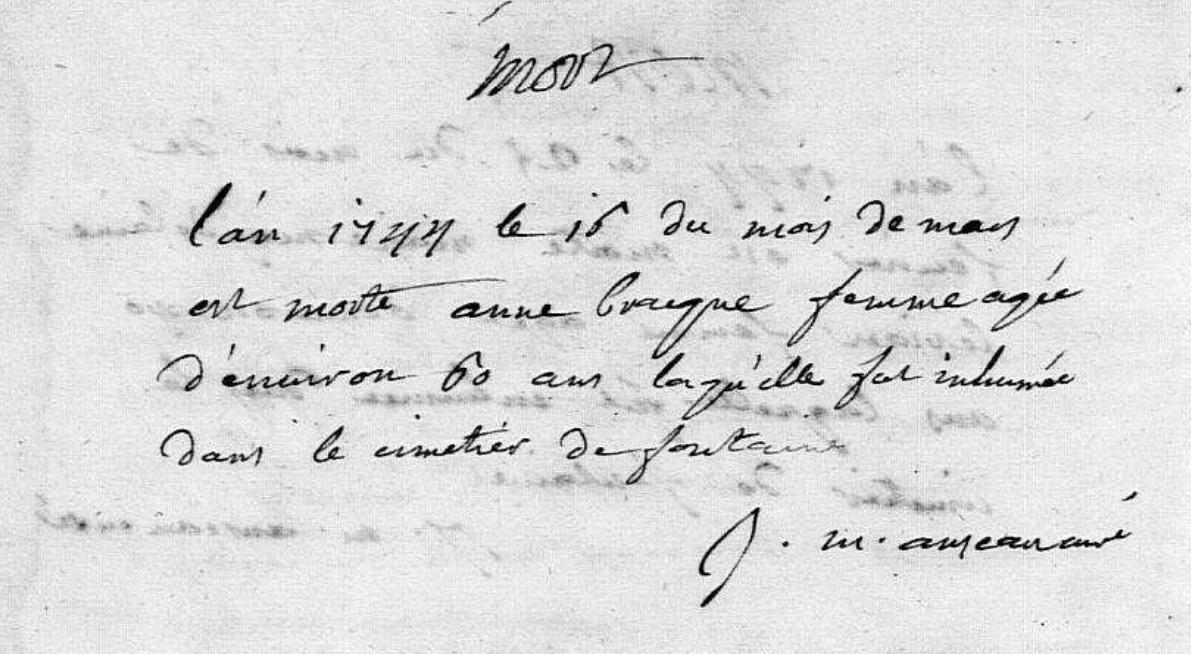 mort
l'án 1744 le 16 du mois de mars
est morte anne bracque femme agée
d'énuiron 60 ans laqu'elle fut inhumée
dans le cimetiér de fontaine
J. m. curé